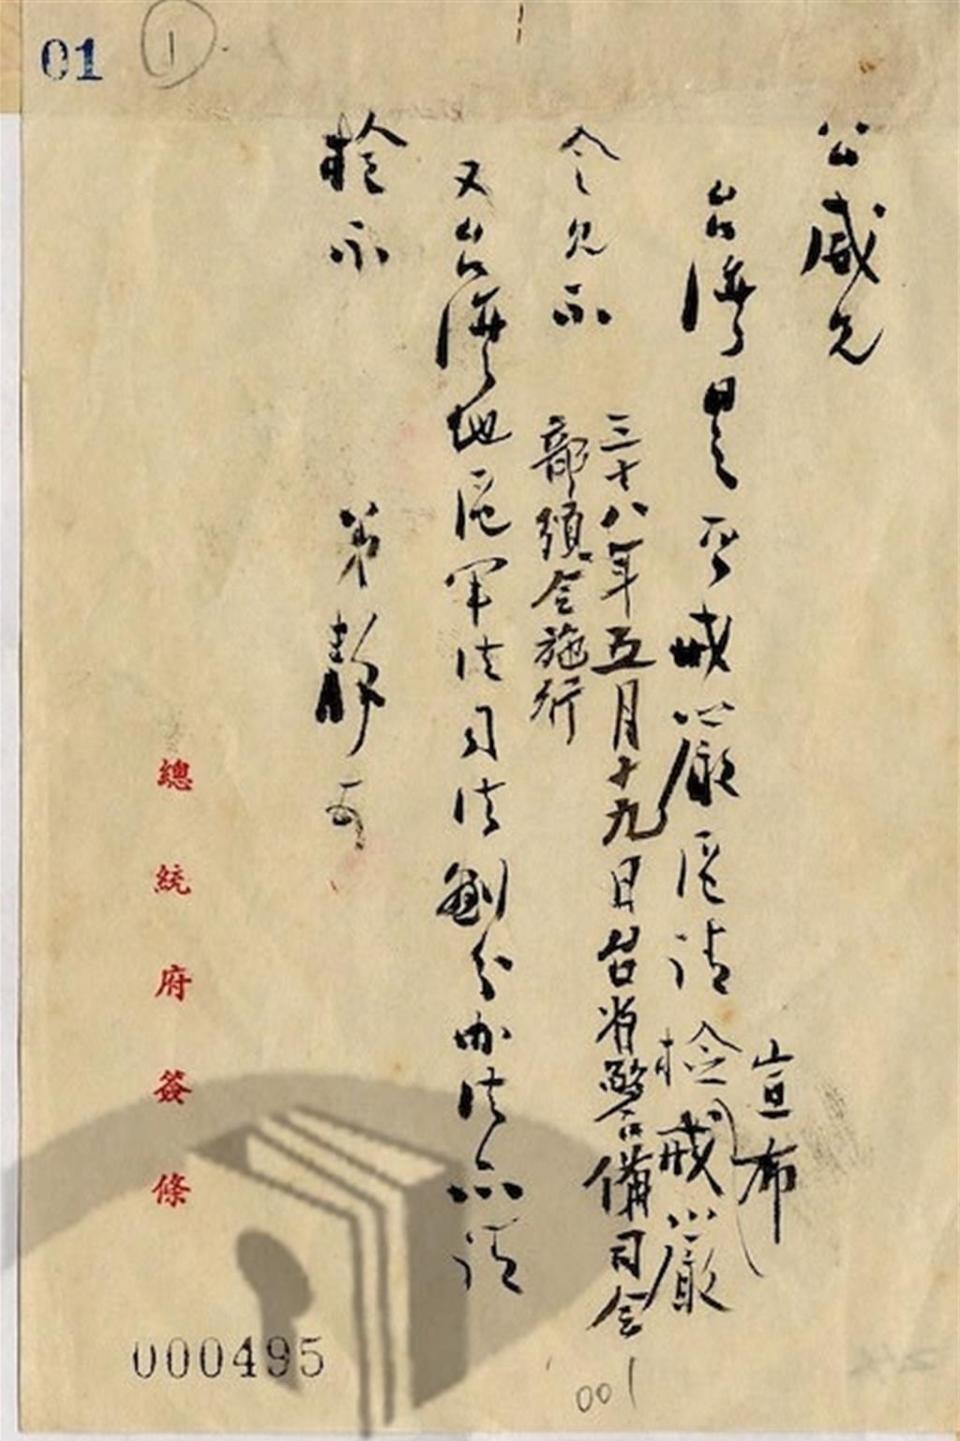 01
1
公威兄
台灣是否戒嚴區請檢宣布戒嚴
令見示
三十八年五月十九日台省警備司令
部頒令施行
又台灣地區軍法司法劃分辦法亦請
檢示
弟靜
總統府簽條
000495
001